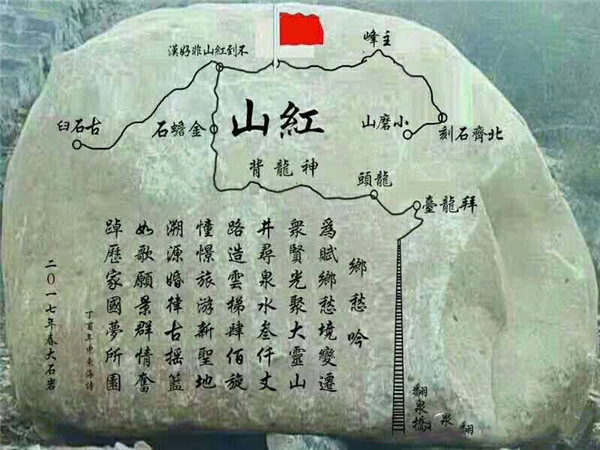 主峰
不到紅山非好漢
北齊石刻
小磨山
金蟾石
古石臼
紅山
神龍背
龍頭
拜龍臺
鄉愁吟
爲賦鄉愁境變遷
衆賢光聚大靈山
井尋泉水叁仟丈
路造雲梯肆佰旋
憧憬旅游新聖地
溯源婚律古搖籃
如歌願景群情奮
踔歷家國夢所圓
丁酉年
海詩
二〇一七年春大石岩
翻泉橋
翻泉